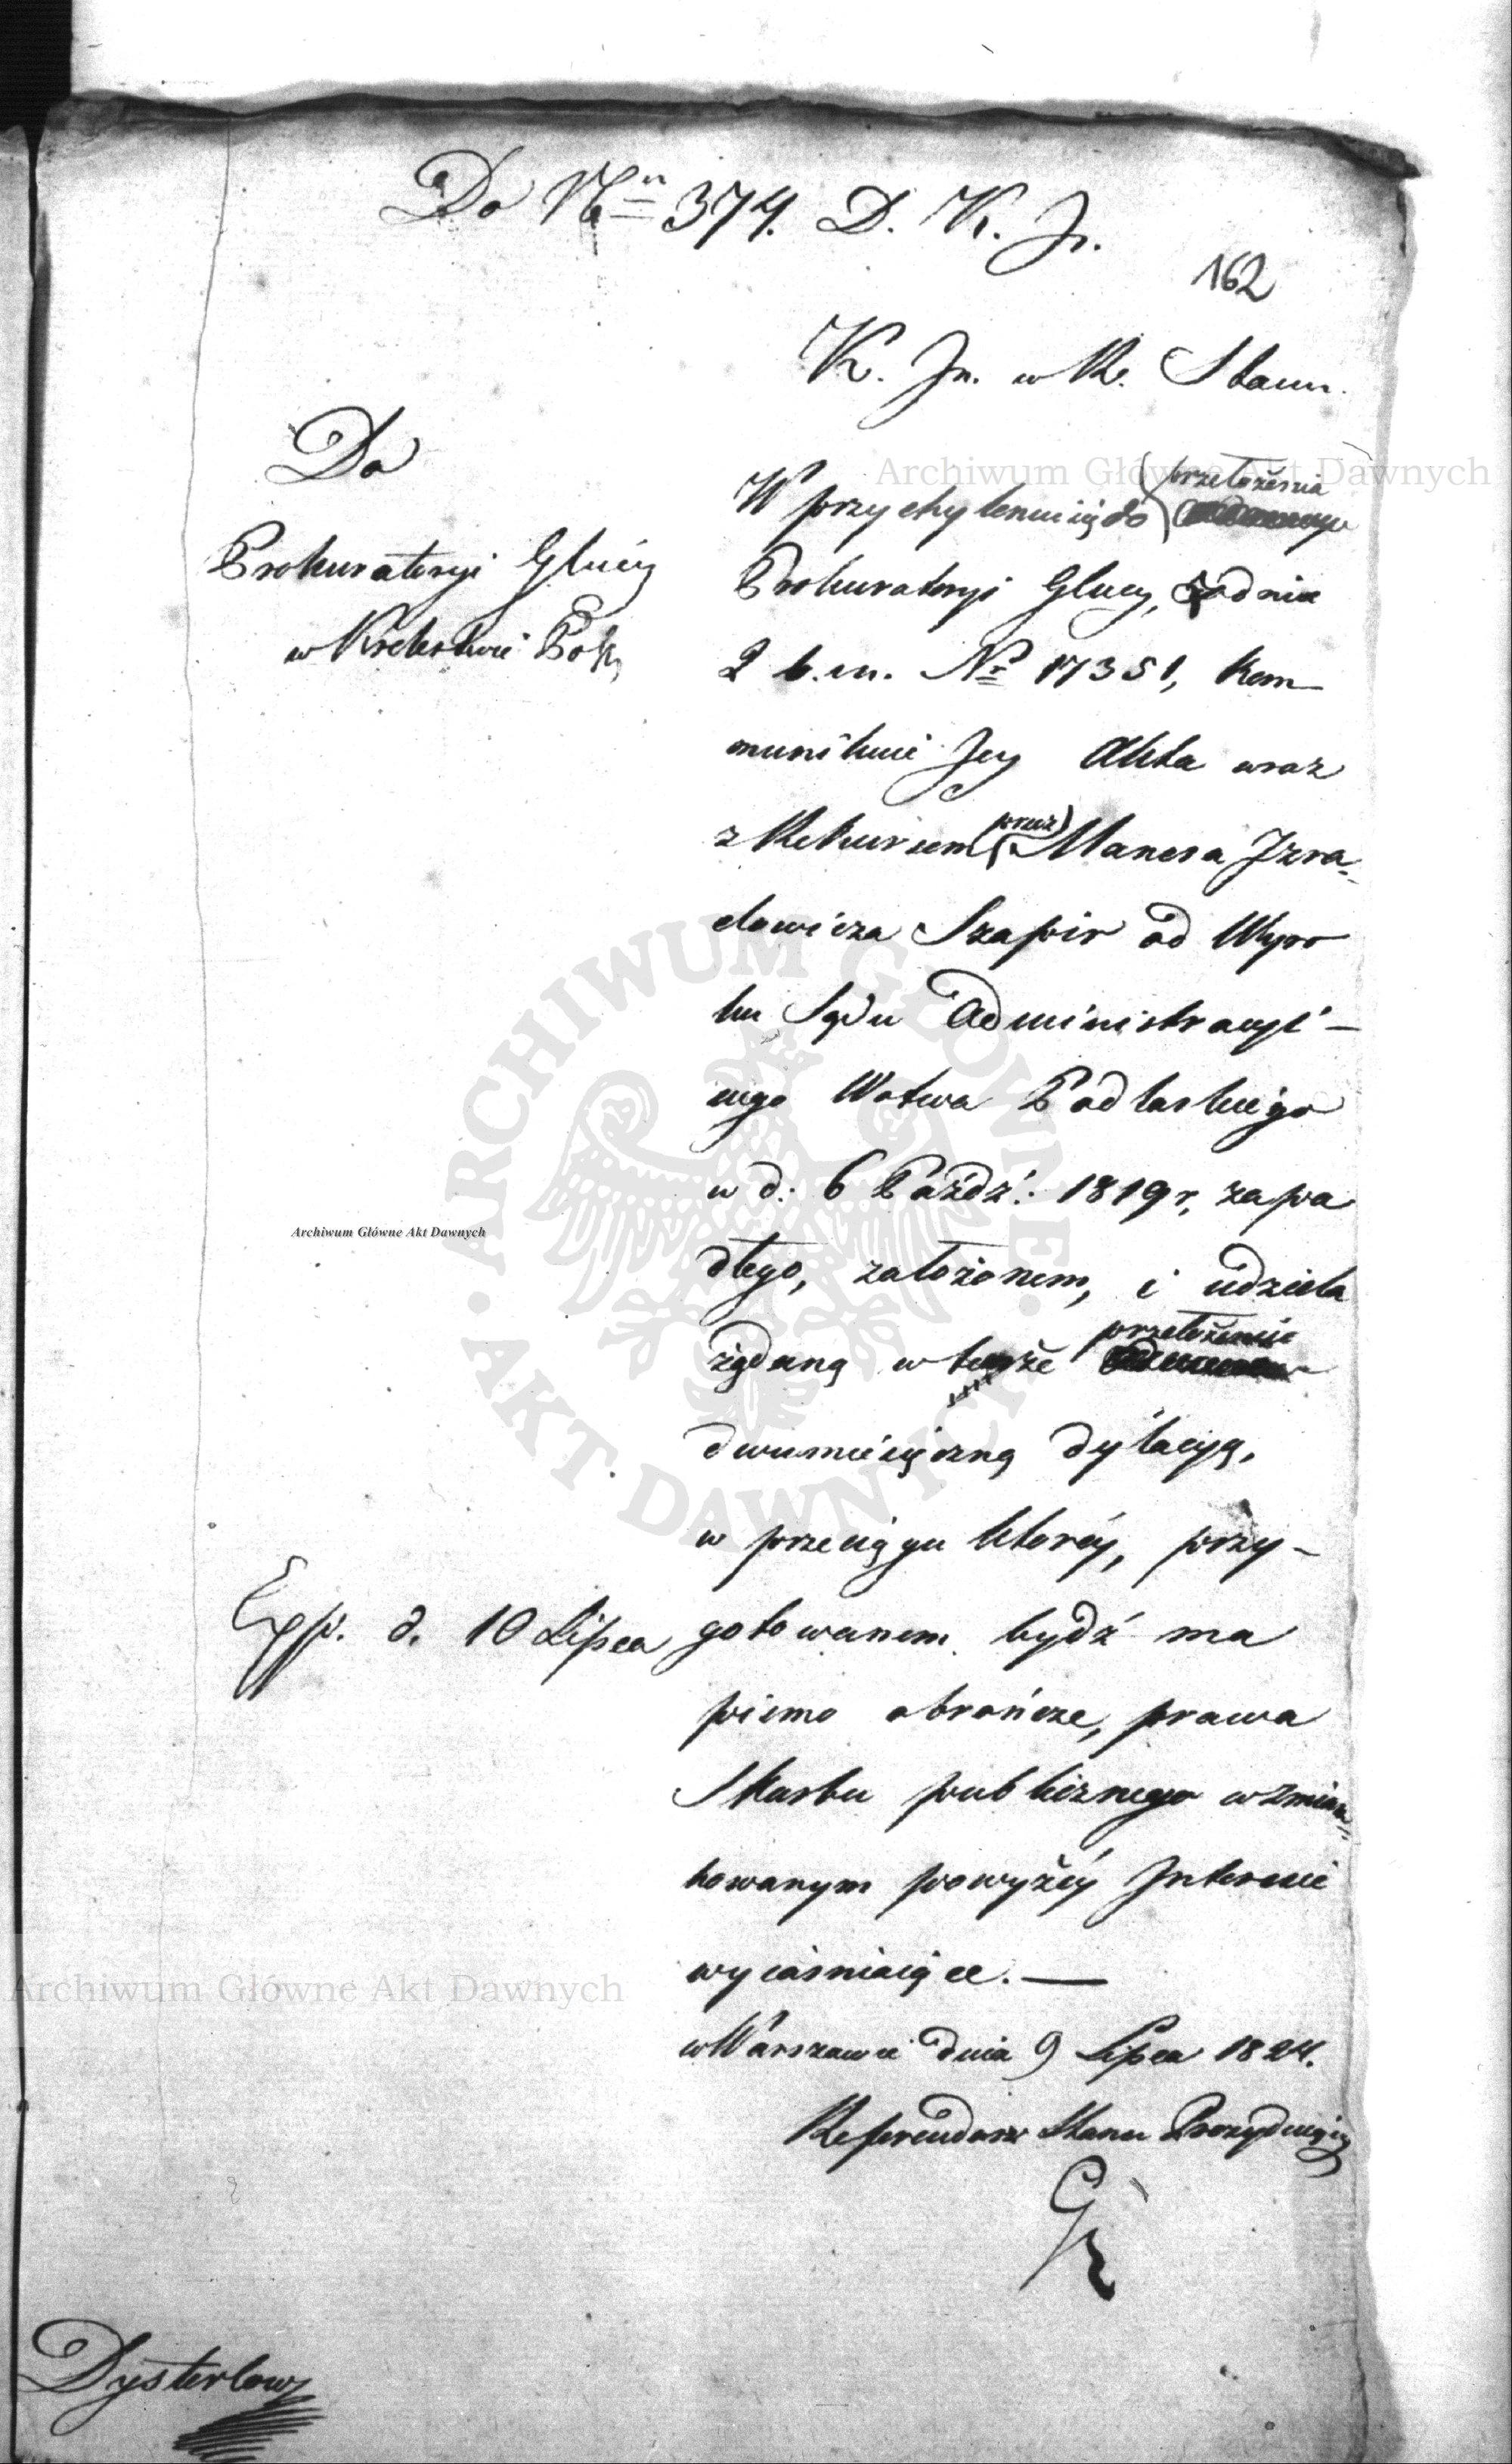 Do Nrn 374. D. K. Jn.
162
K. Jn. w Re. Stanu.
Do
Prokuratoryi Glney
w Królestwie Pols
W przychyleniu się do przełożenia
Prokuratoryi Glney, z dnia
2 b. m. No 17351, kom-
munikuie Jey Akta wraz
z Rekursem przez Manesa Izra-
elowicza Szapir od Wyro
ku Sądu Administracyi-
nego Wotwa Podlaskiego
w d. 6 Paźdź: 1819 r. zapa
dłego, założonem, i udziela
żądaną w temże przełożenie
dwumiesięczną dylacyą,
w przeciągu którey, przy-
gotowanem bydź ma
pismo obrończe, prawa
Skarbu publicznego w zmian-
kowanym powyżey Interesie
wyiaśniaiące. —
w Warszawie dnia 9 Lipca 1824.
Referendarz Stanu Prezyduiący
Exp. d. 10 Lipca
Dysterlow
Archiwum Główne Akt Dawnych
Archiwum Główne Akt Dawnych
Archiwum Główne Akt Dawnych
ARCHIWUM GŁÓWNE · AKT DAWNYCH ·